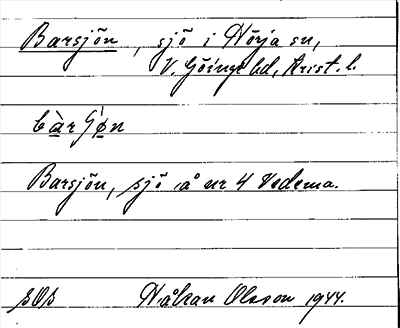 Barsjön, sjö i Nörja sn,
V. Göinge hd, Krist. l.
bàrʃø̀n
Barsjön, sjö å nr 4 Vedema.
SOs Håkan Olsson 1944.